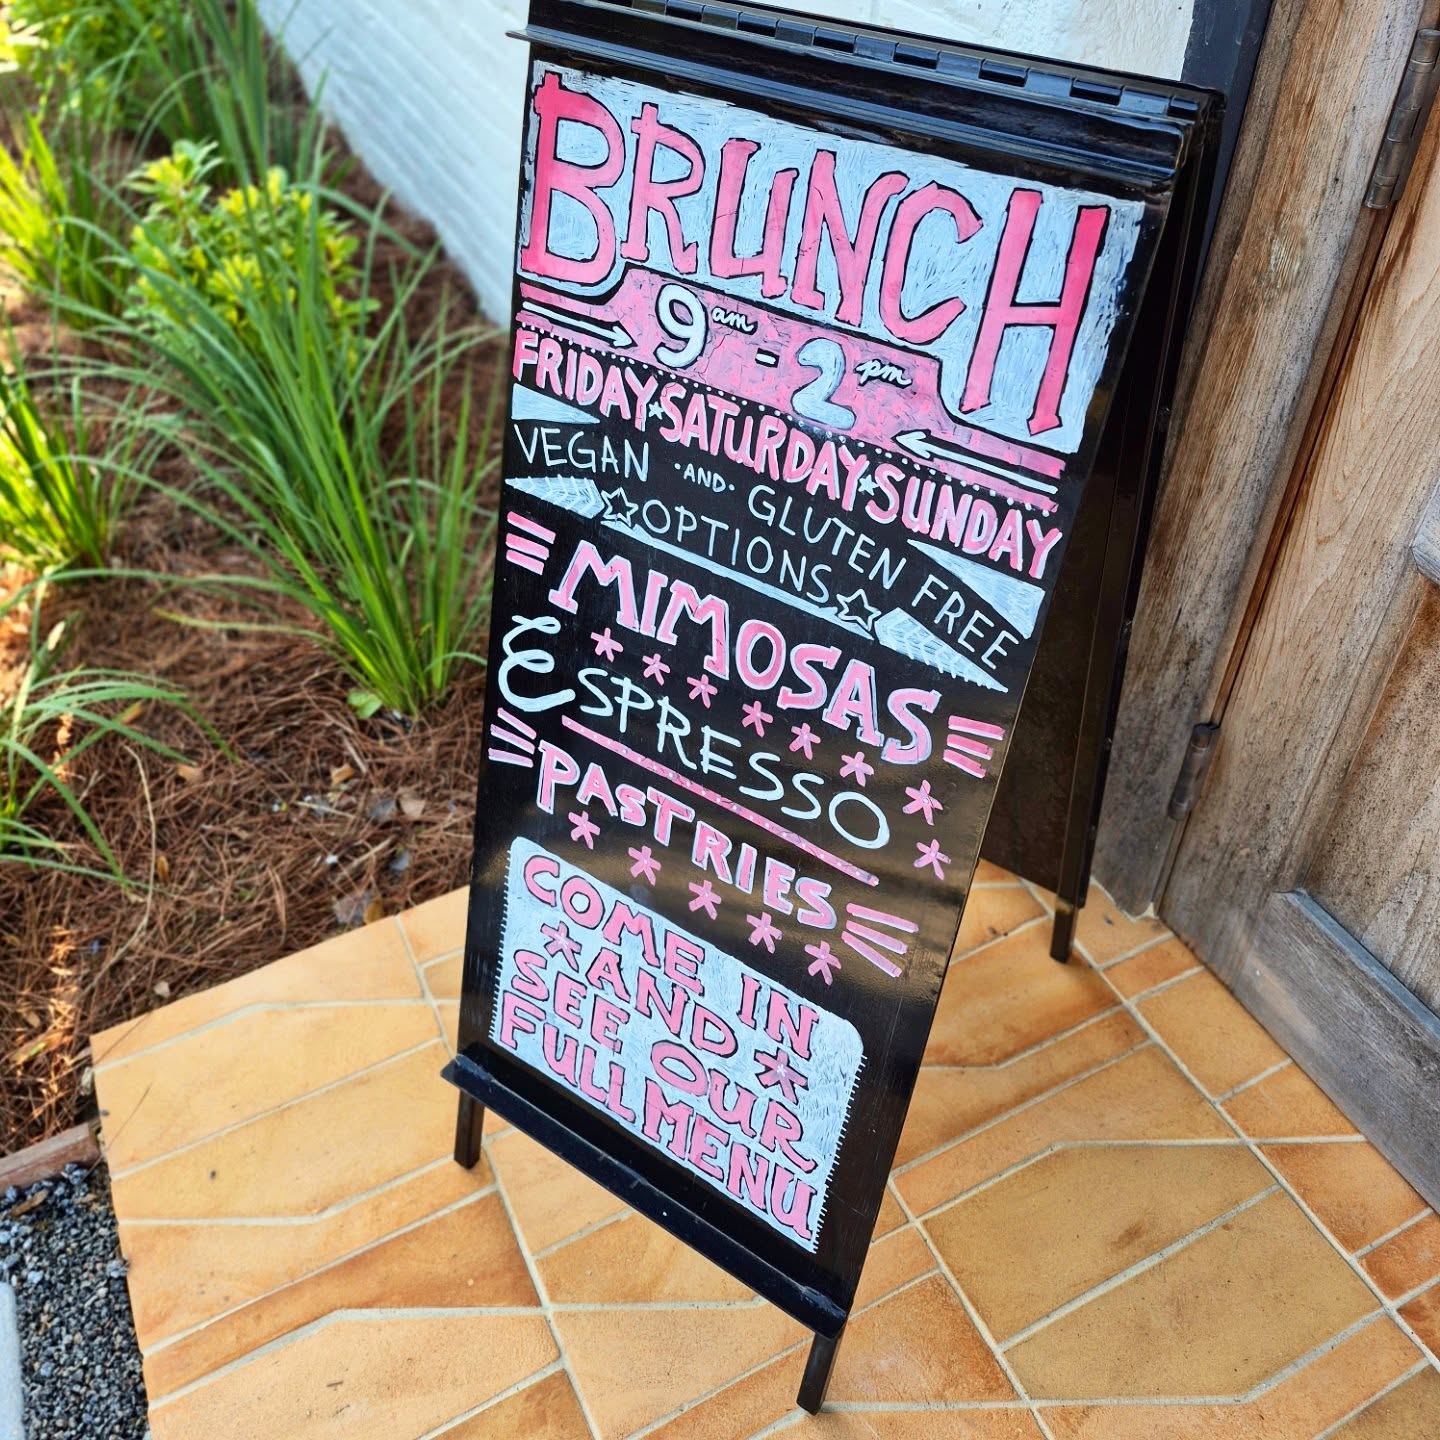 BRUNCH
9am - 2pm
FRIDAY SATURDAY SUNDAY
VEGAN AND GLUTEN FREE
OPTIONS
MIMOSAS
ESPRESSO
PASTRIES
COME IN
AND
SEE OUR
FULL MENU